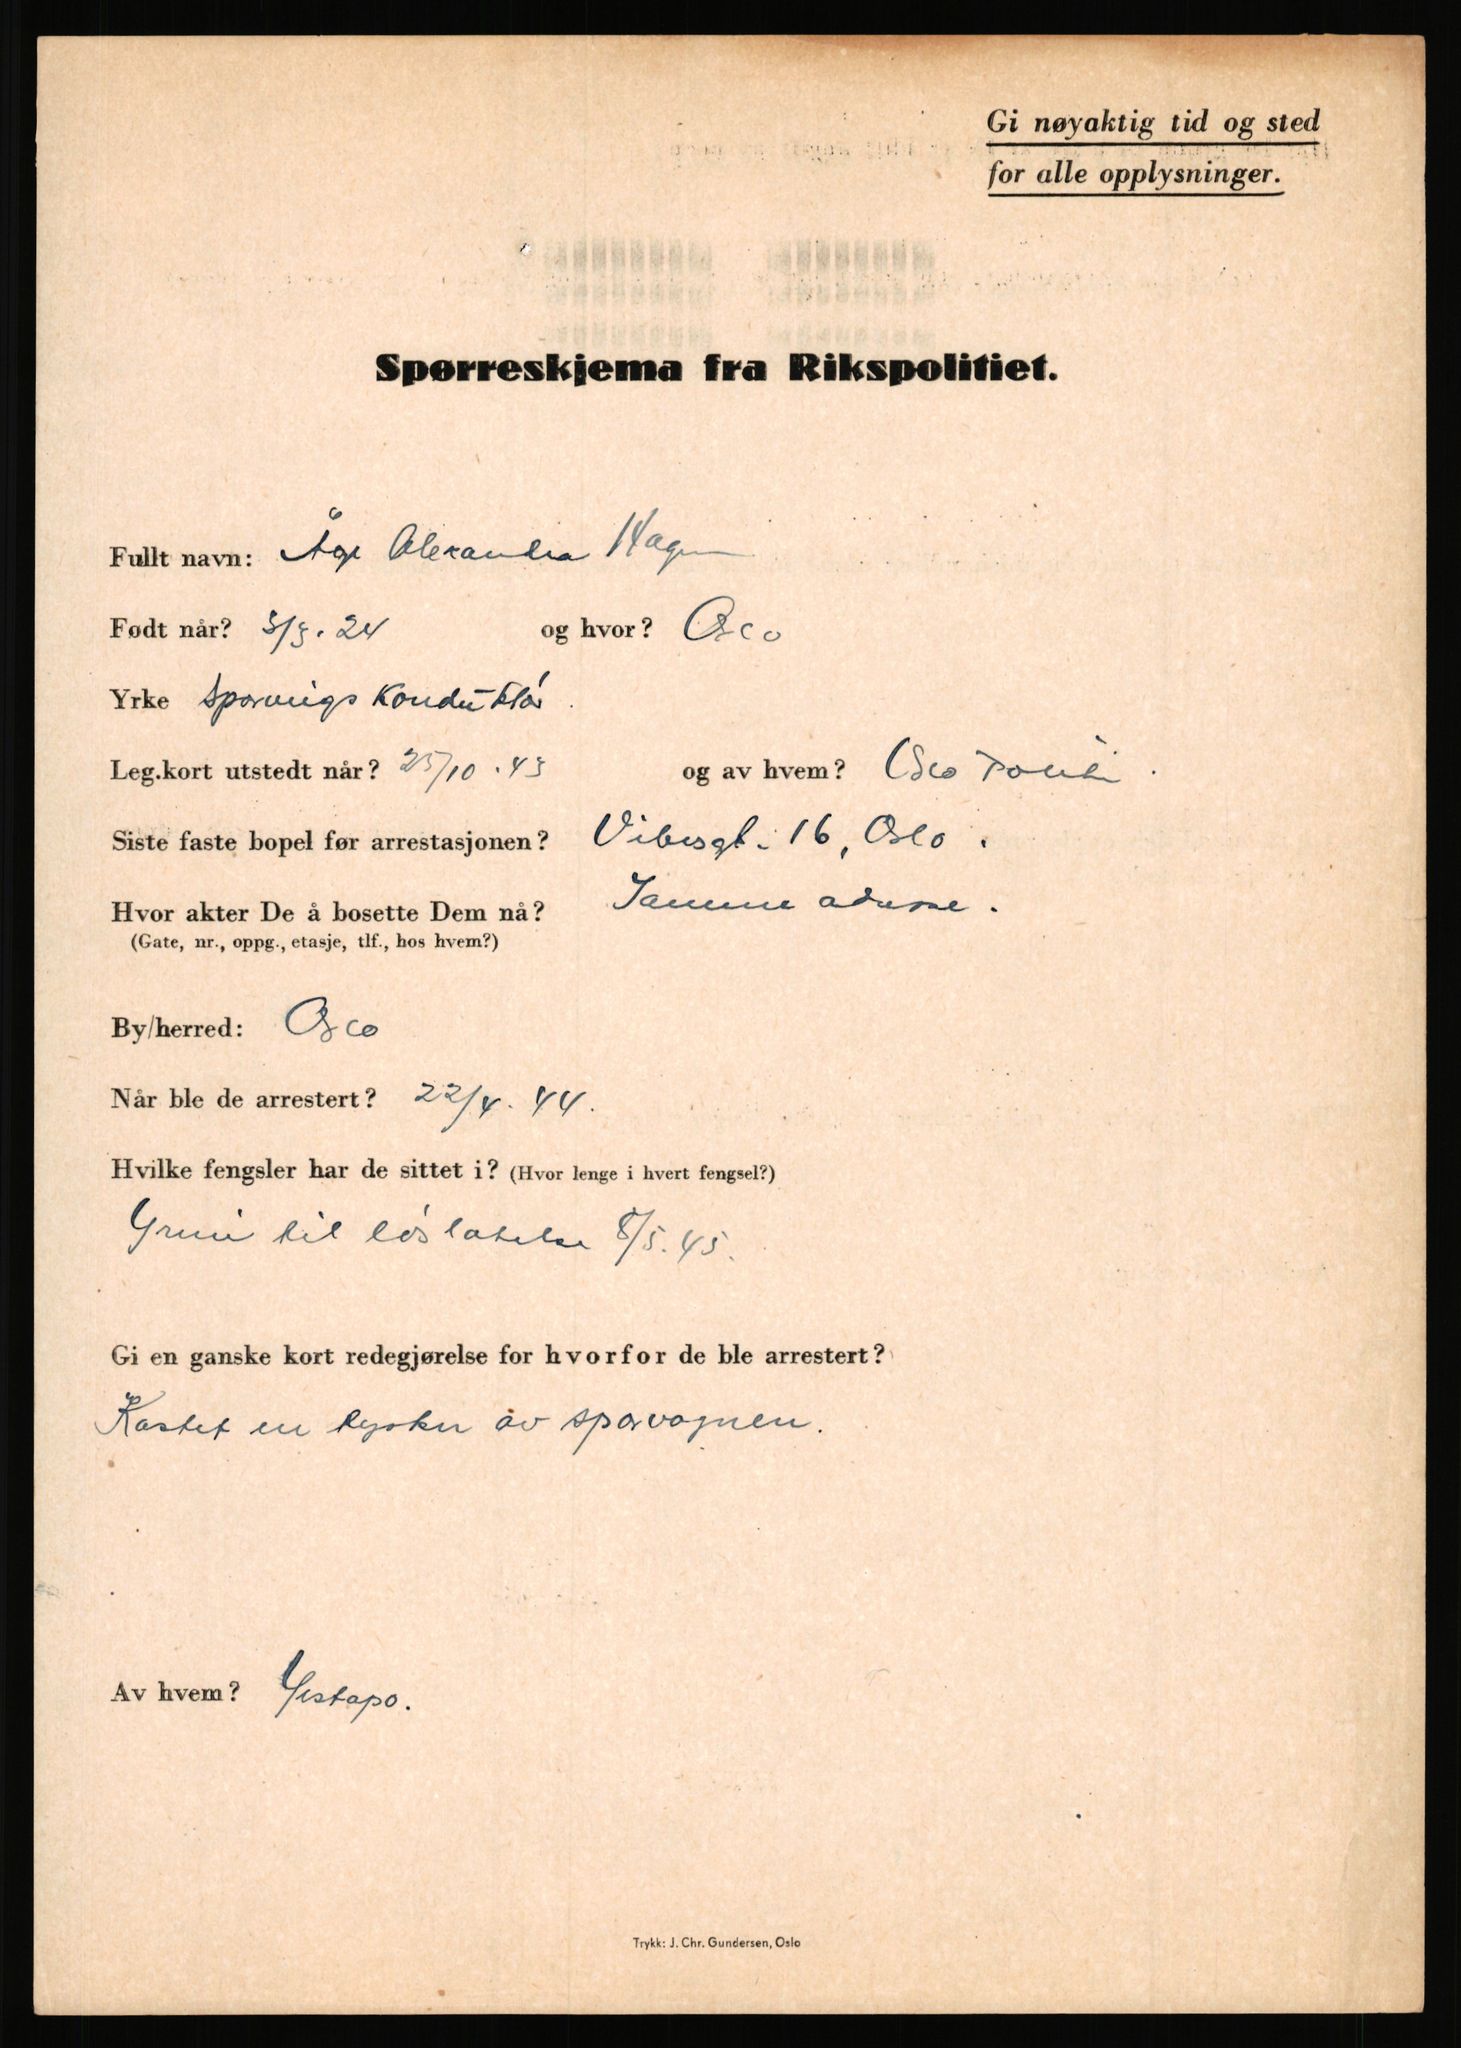 Gi nøyaktig tid og sted
for alle opplysninger.
Spørreskjema fra Rikspolitiet.
Fullt navn: Åge Alexander Hagen
Født når? 3/3. 24 og hvor? Oslo
Yrke Sporveigs Konduktør.
Leg.kort utstedt når? 25/10. 43 og av hvem? Oslo Politi.
Siste faste bopel før arrestasjonen? Vibesgt. 16, Oslo.
Hvor akter De å bosette Dem nå? Samme adresse.
(Gate, nr., oppg., etasje, tlf., hos hvem?)
By/herred: Oslo
Når ble de arrestert? 22/4. 44.
Hvilke fengsler har de sittet i? (Hvor lenge i hvert fengsel?)
Grini til løslatelse 8/5. 45.
Gi en ganske kort redegjørelse for hvorfor de ble arrestert?
Kastet en tysker av sporvognen.
Av hvem? Gestapo.
Trykk: J. Chr. Gundersen, Oslo